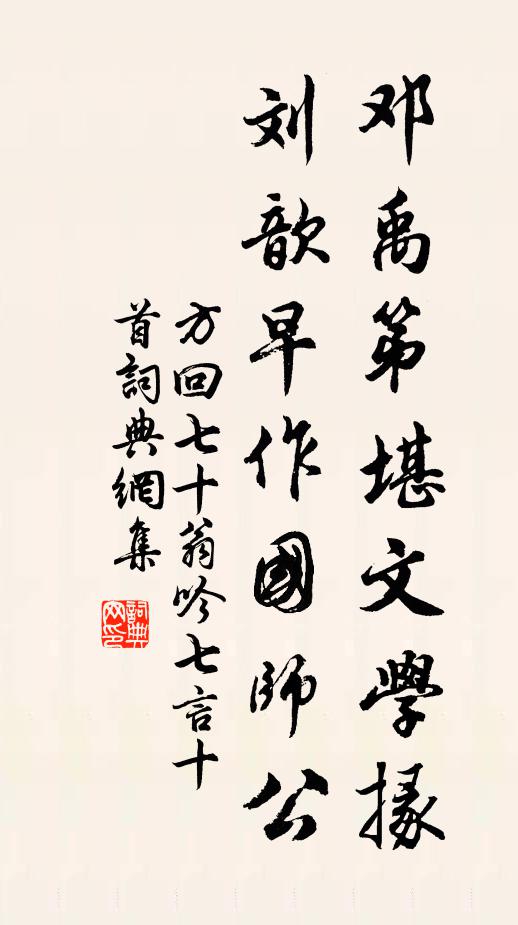 邓禹第堪文學掾
刘歆早作國師公
方回七十翁吟七言十
首詞典網集
詞典网印